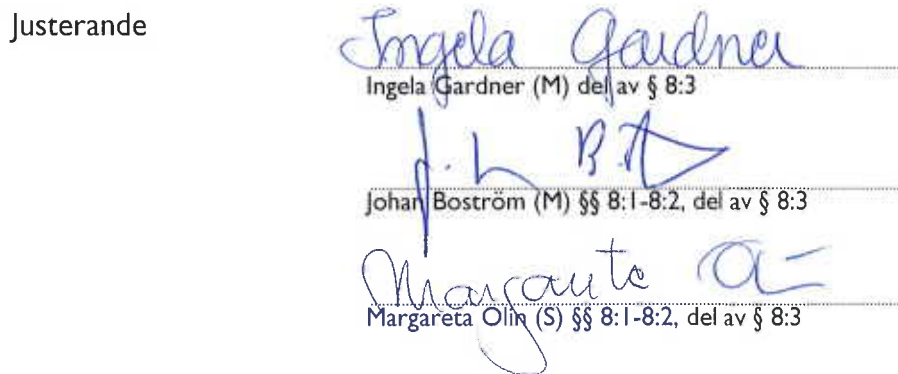 Justerande
Ingela Gardner
Ingela Gardner (M) del av § 8:3
Johan Boström (M) §§ 8:1-8:2, del av § 8:3
Margareta Ol
Margareta Olin (S) §§ 8:1-8:2, del av § 8:3